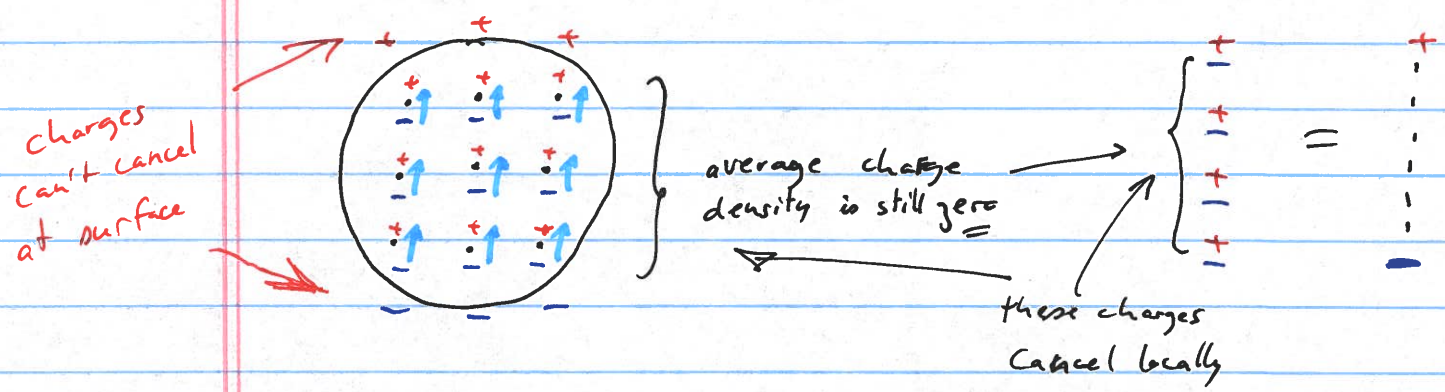 charges
can't cancel
at surface
average charge
density is still zero
=
these charges
cancel locally